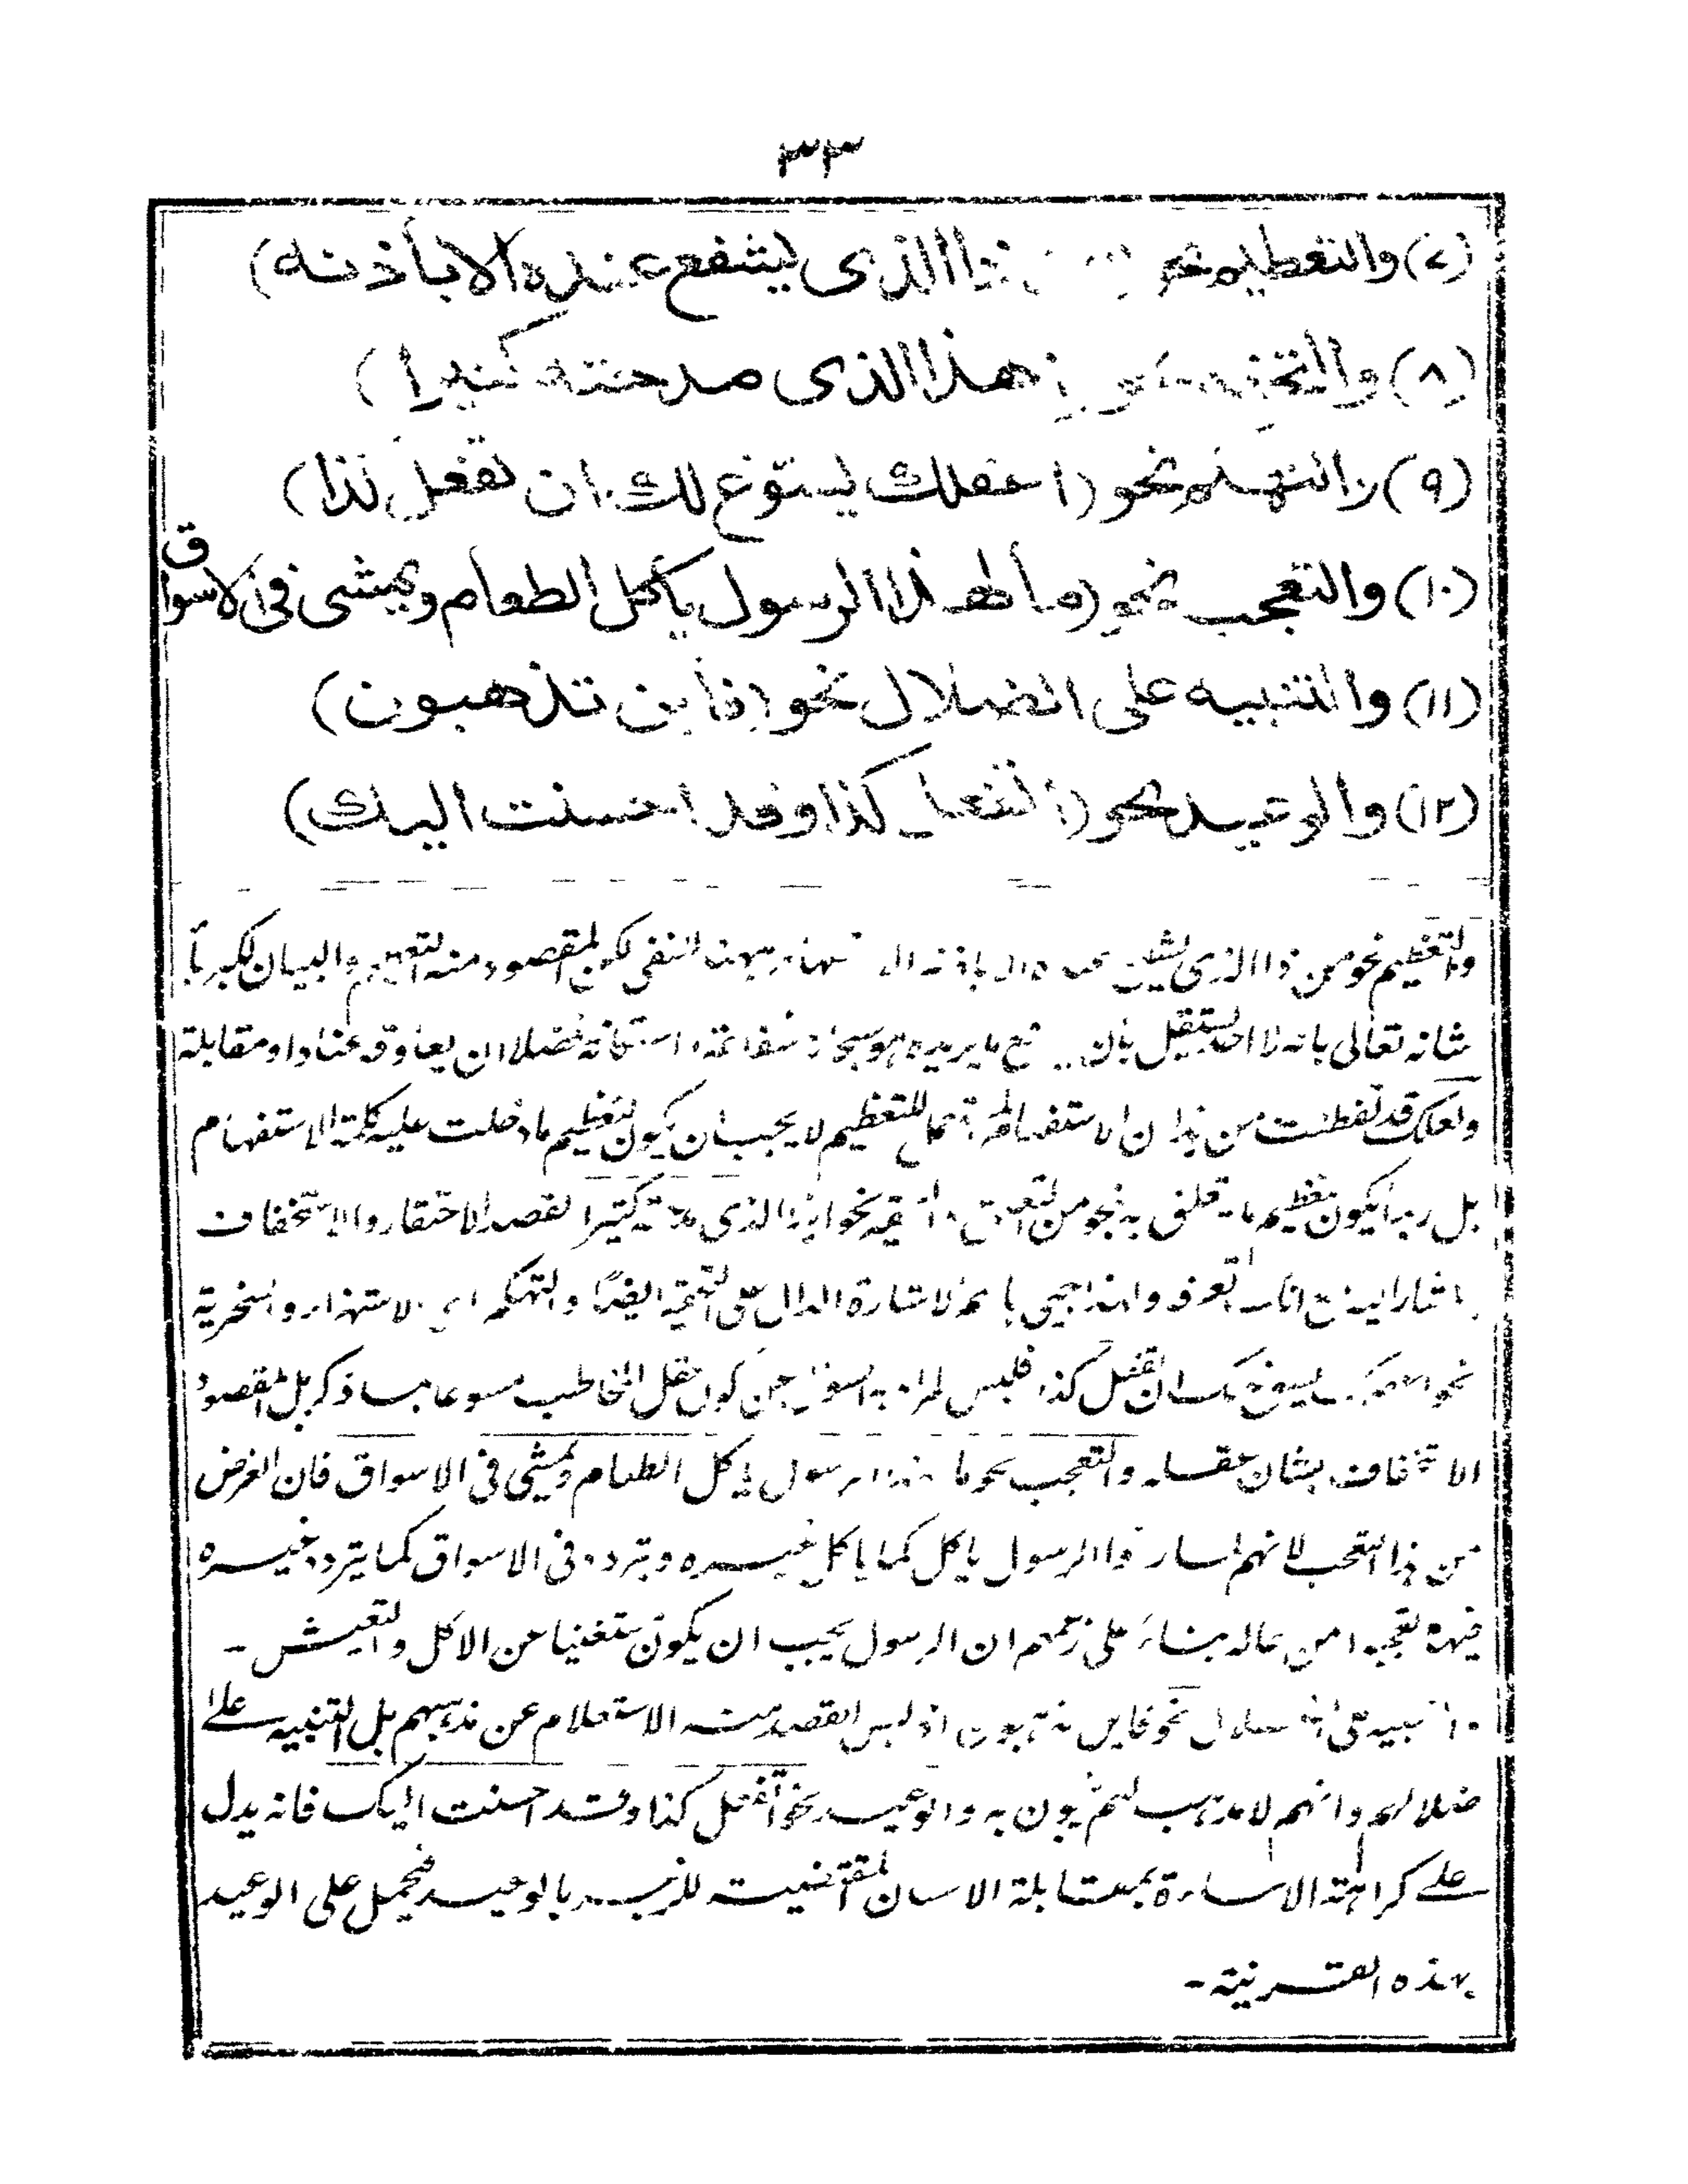 ٣٣
(٧) والتعظيم نحو ذا الذى يشفع عنده الا بأذنه)
(٨) والتحقير نحو (اهذا الذى مدحته كثيرا)
(٩) والتهكم نحو (اعقلك يسوّغ لك ان تفعل كذا)
(١٠) والتعجب نحو (ما لهذا الرسول يأكل الطعام ويمشى فى الاسواق
(١١) والتنبيه على الضلال نحو (فأين تذهبون)
(١٢) والوعيد نحو (اتفعل كذا وقد احسنت اليك)
والتعظيم نحو من ذا الذى يشفع عنده الا باذنه للنفى لكن المقصود منه التعظيم والبيان لكبرياء
شانه تعالى بانه لا احد يستقل بان يدفع ما يريده هو سبحانه شفاعة واستكانة فضلا ان يعاوق عنادا او مقابلة
ولعلك قد تفطنت من هذا ان الاستفهام المستعمل للتعظيم لا يجب ان يكون لتعظيم ما دخلت عليه كلمة الاستفهام
بل ربما يكون تعظيم ما يتعلق به نحو من التعلق والتحقير نحو اهذا الذى مدحته كثيرا لقصد الاحتقار والاستخفاف
باسم الاشارة الدال على التحقير ايضا والتهكم اى الاستهزاء والسخرية
نحو اعقلك يسوغ لك ان تفعل كذا فليس المراد به السؤال عن كون عقل المخاطب مسوغا لما ذكر بل المقصود
الاستخفاف بشان عقله والتعجب نحو ما لهذا الرسول ياكل الطعام ويمشى فى الاسواق فان الغرض
من هذا التعجب لانهم لما رأوا الرسول ياكل كما ياكل غيره ويتردد فى الاسواق كما يتردد غيره
تعجبوا من حاله بناء على زعمهم ان الرسول يجب ان يكون مستغنيا عن الاكل والتعيش -
والتنبيه على الضلال نحو فاين تذهبون اذ ليس القصد منه الاستعلام عن مذهبهم بل التنبيه على
ضلالهم وانهم لا مذهب لهم يذهبون به والوعيد نحو اتفعل كذا وقد احسنت اليك فانه يدل
على كراهة الاساءة بمقابلة الاحسان المقتضية للزجر بالوعيد فيحمل على الوعيد
بهذه القرينة -